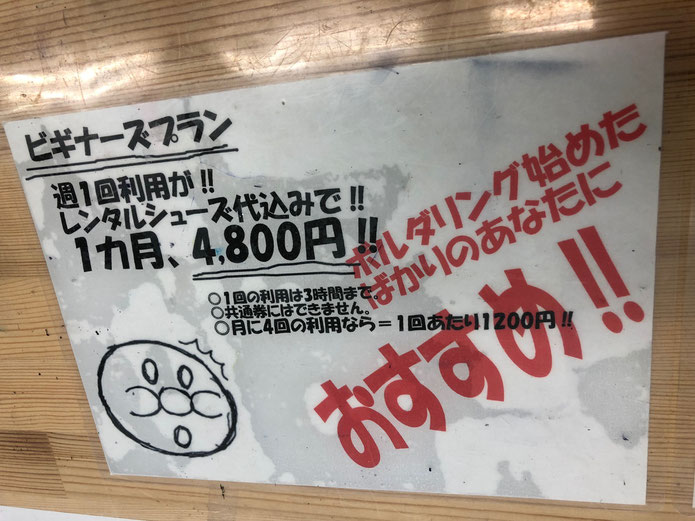 ビギナーズプラン
週1回利用が!!
レンタルシューズ代込みで!!
1カ月、4,800円!!
ボルダリング始めた
ばかりのあなたに
おすすめ!!
○1回の利用は3時間まで。
○共通券にはできません。
○月に4回の利用なら=1回あたり1200円!!